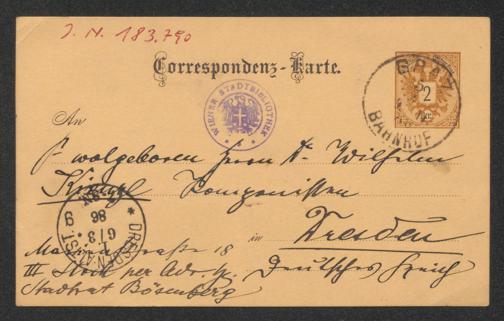 J. N. 183.790
Correspondenz-Karte.
GRAZ
BAHNHOF
2
WIENER STADTBIBLIOTHEK
An
Wolgeboren Herrn Dr. Wilhelm
Kienzl Komponisten
in Dresden
straße 18
III. Stock per Adr. H. Deutsches Reich
Stadtrat Bösenberg
DRESDEN-ALTST.
6/3.
86